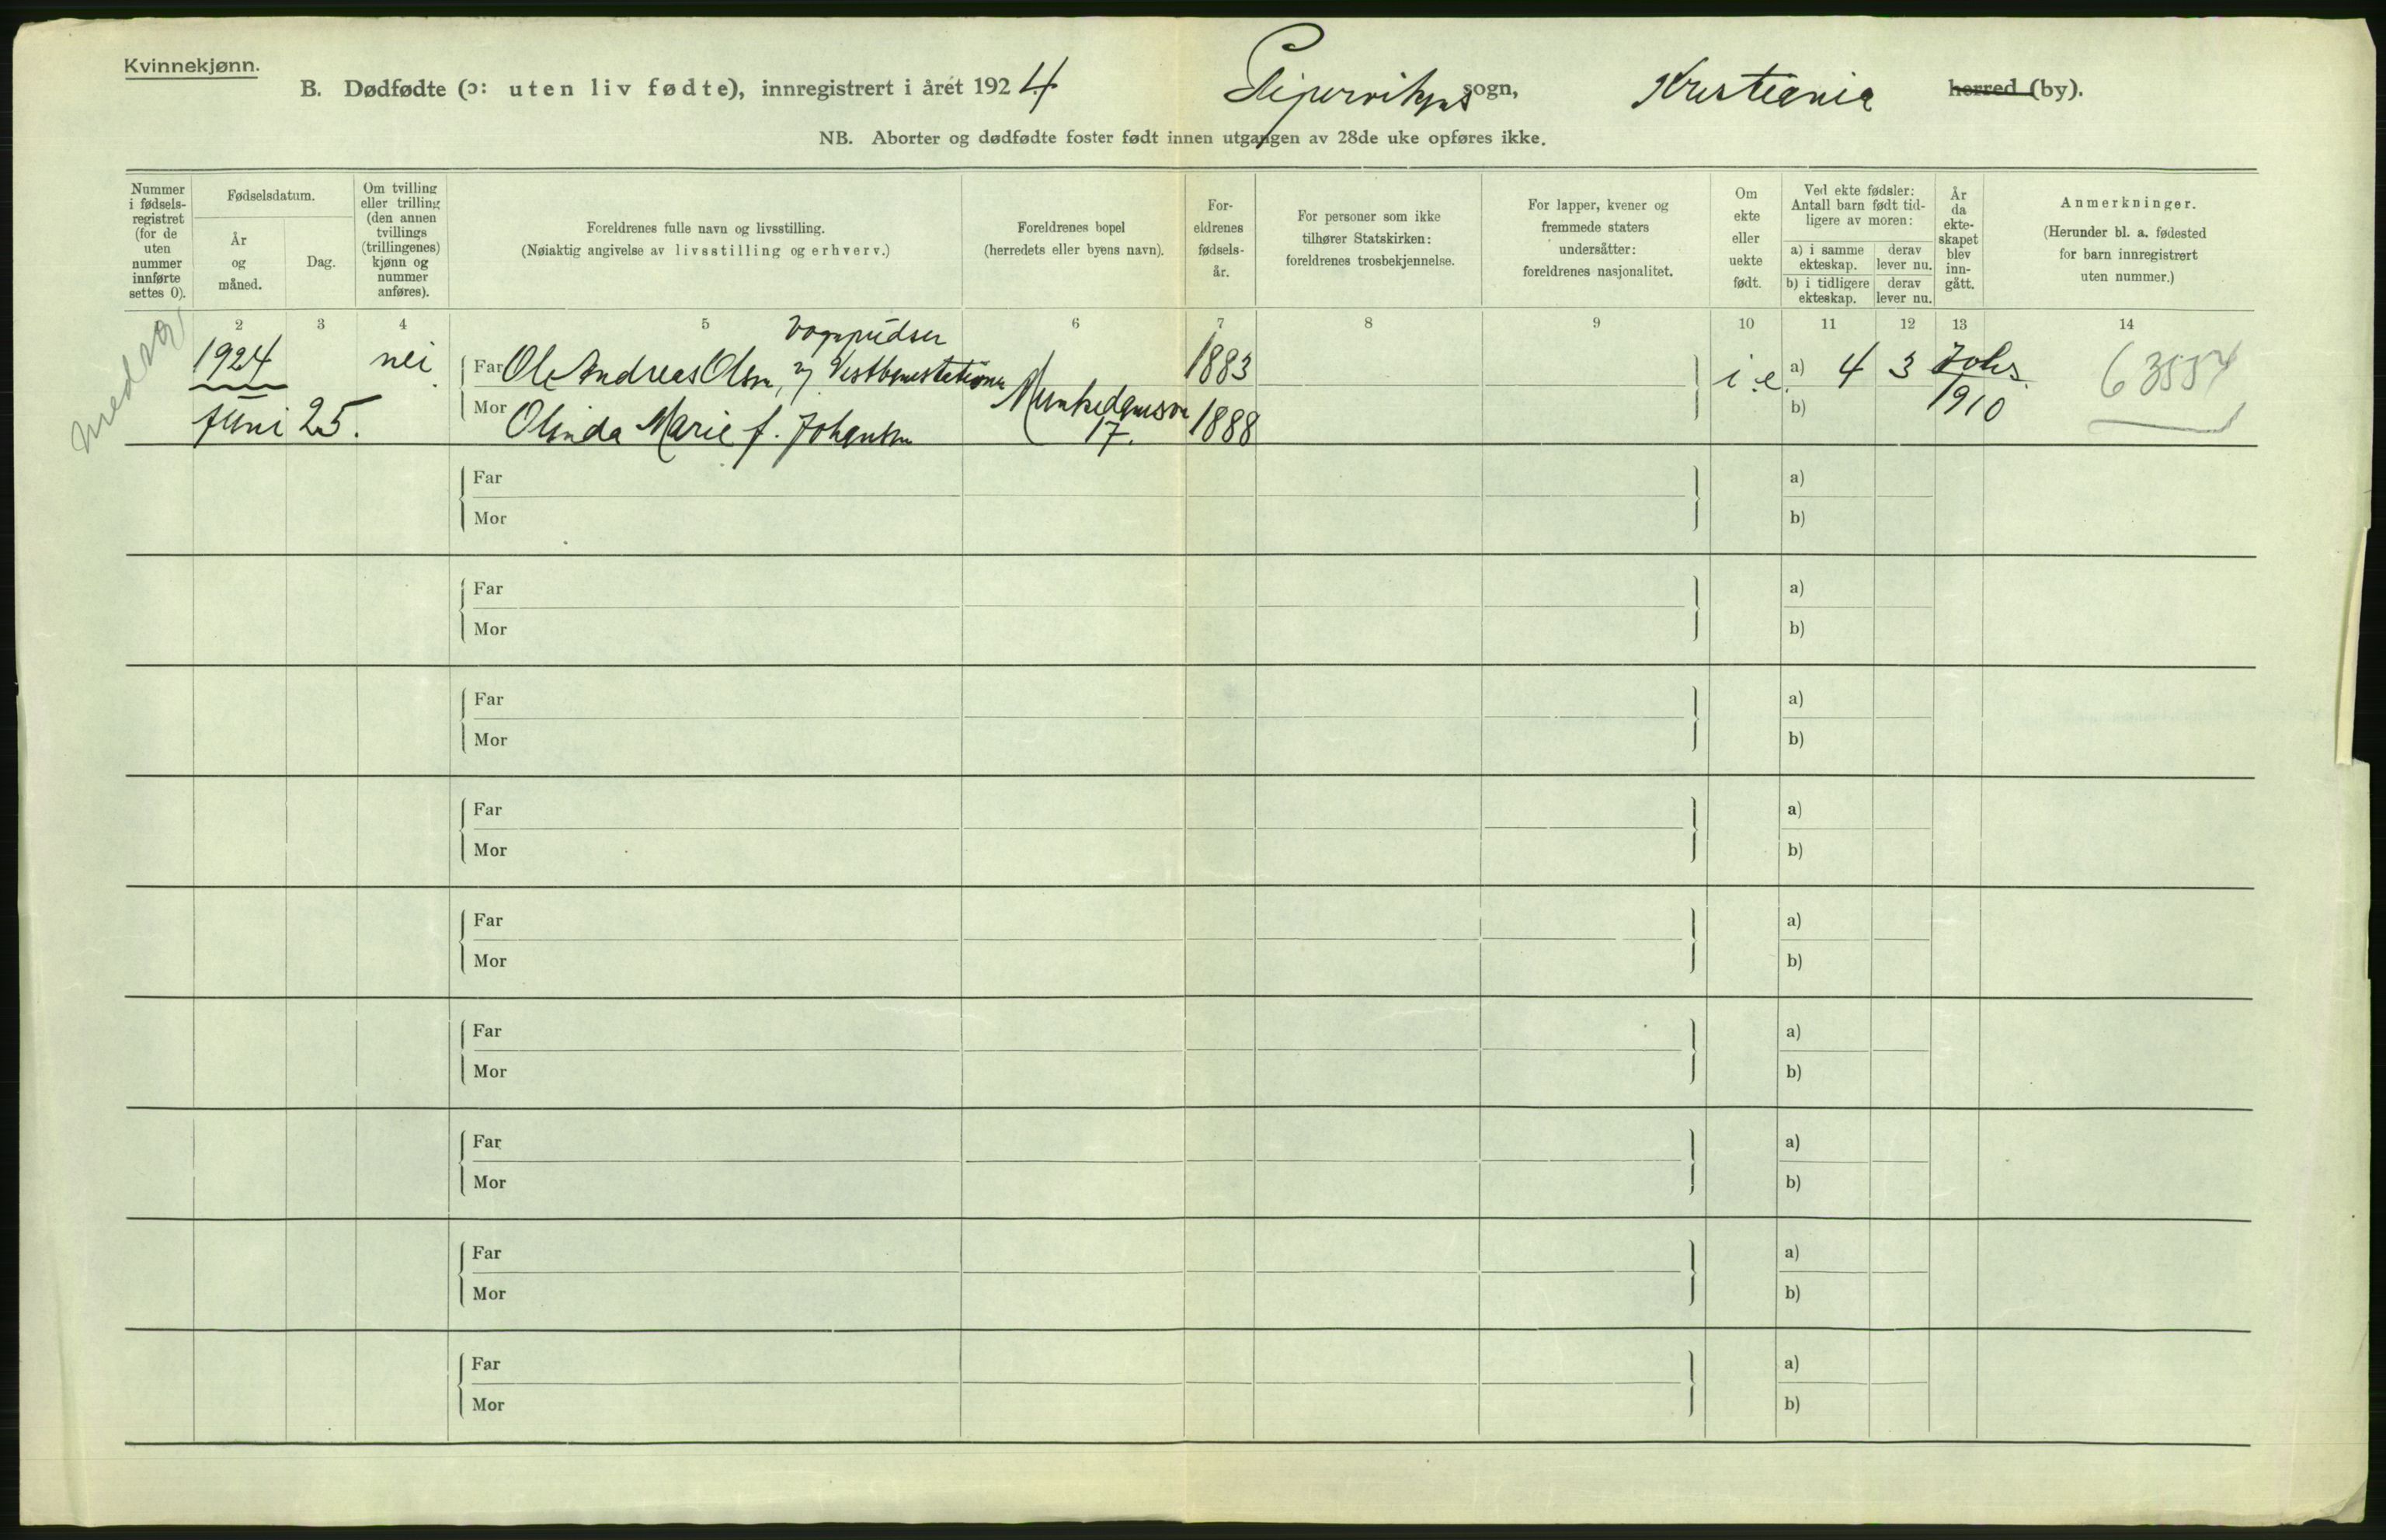 Kvinnekjønn.
B. Dødfødte (ɔ: uten liv fødte), innregistrert i året 1924 Pipervikens sogn, Kristiania herred (by).
NB. Aborter og dødfødte foster født innen utgangen av 28de uke opføres ikke.
Nummer i fødsels-registret (for de uten nummer innførte settes 0).
Fødselsdatum.
År og måned.
Dag.
Om tvilling eller trilling (den annen tvillings (trillingenes) kjønn og nummer anføres).
Foreldrenes fulle navn og livsstilling.
(Nøiaktig angivelse av livsstilling og erhverv.)
Foreldrenes bopel
(herredets eller byens navn).
For-eldrenes fødsels-år.
For personer som ikke tilhører Statskirken: foreldrenes trosbekjennelse.
For lapper, kvener og fremmede staters undersåtter: foreldrenes nasjonalitet.
Om ekte eller uekte født.
Ved ekte fødsler: Antall barn født tid-ligere av moren:
a) i samme ekteskap.
derav lever nu.
b) i tidligere ekteskap.
derav lever nu.
År da ekte-skapet blev inn-gått.
Anmerkninger.
(Herunder bl. a. fødested for barn innregistrert uten nummer.)
2 3 4 5 6 7 8 9 10 11 12 13 14
Vognpudser
1924 nei Far Ole Andreas Olsen, v/ Vestbanestationen 1883 i.e. a) 4 3 63554
Mor Munkedamsvn 1910 b)
juni 25. Olinda Marie f. Johansen 17. 1888
Far a)
Mor b)
Far a)
Mor b)
Far a)
Mor b)
Far a)
Mor b)
Far a)
Mor b)
Far a)
Mor b)
Far a)
Mor b)
Far a)
Mor b)
Far a)
Mor b)